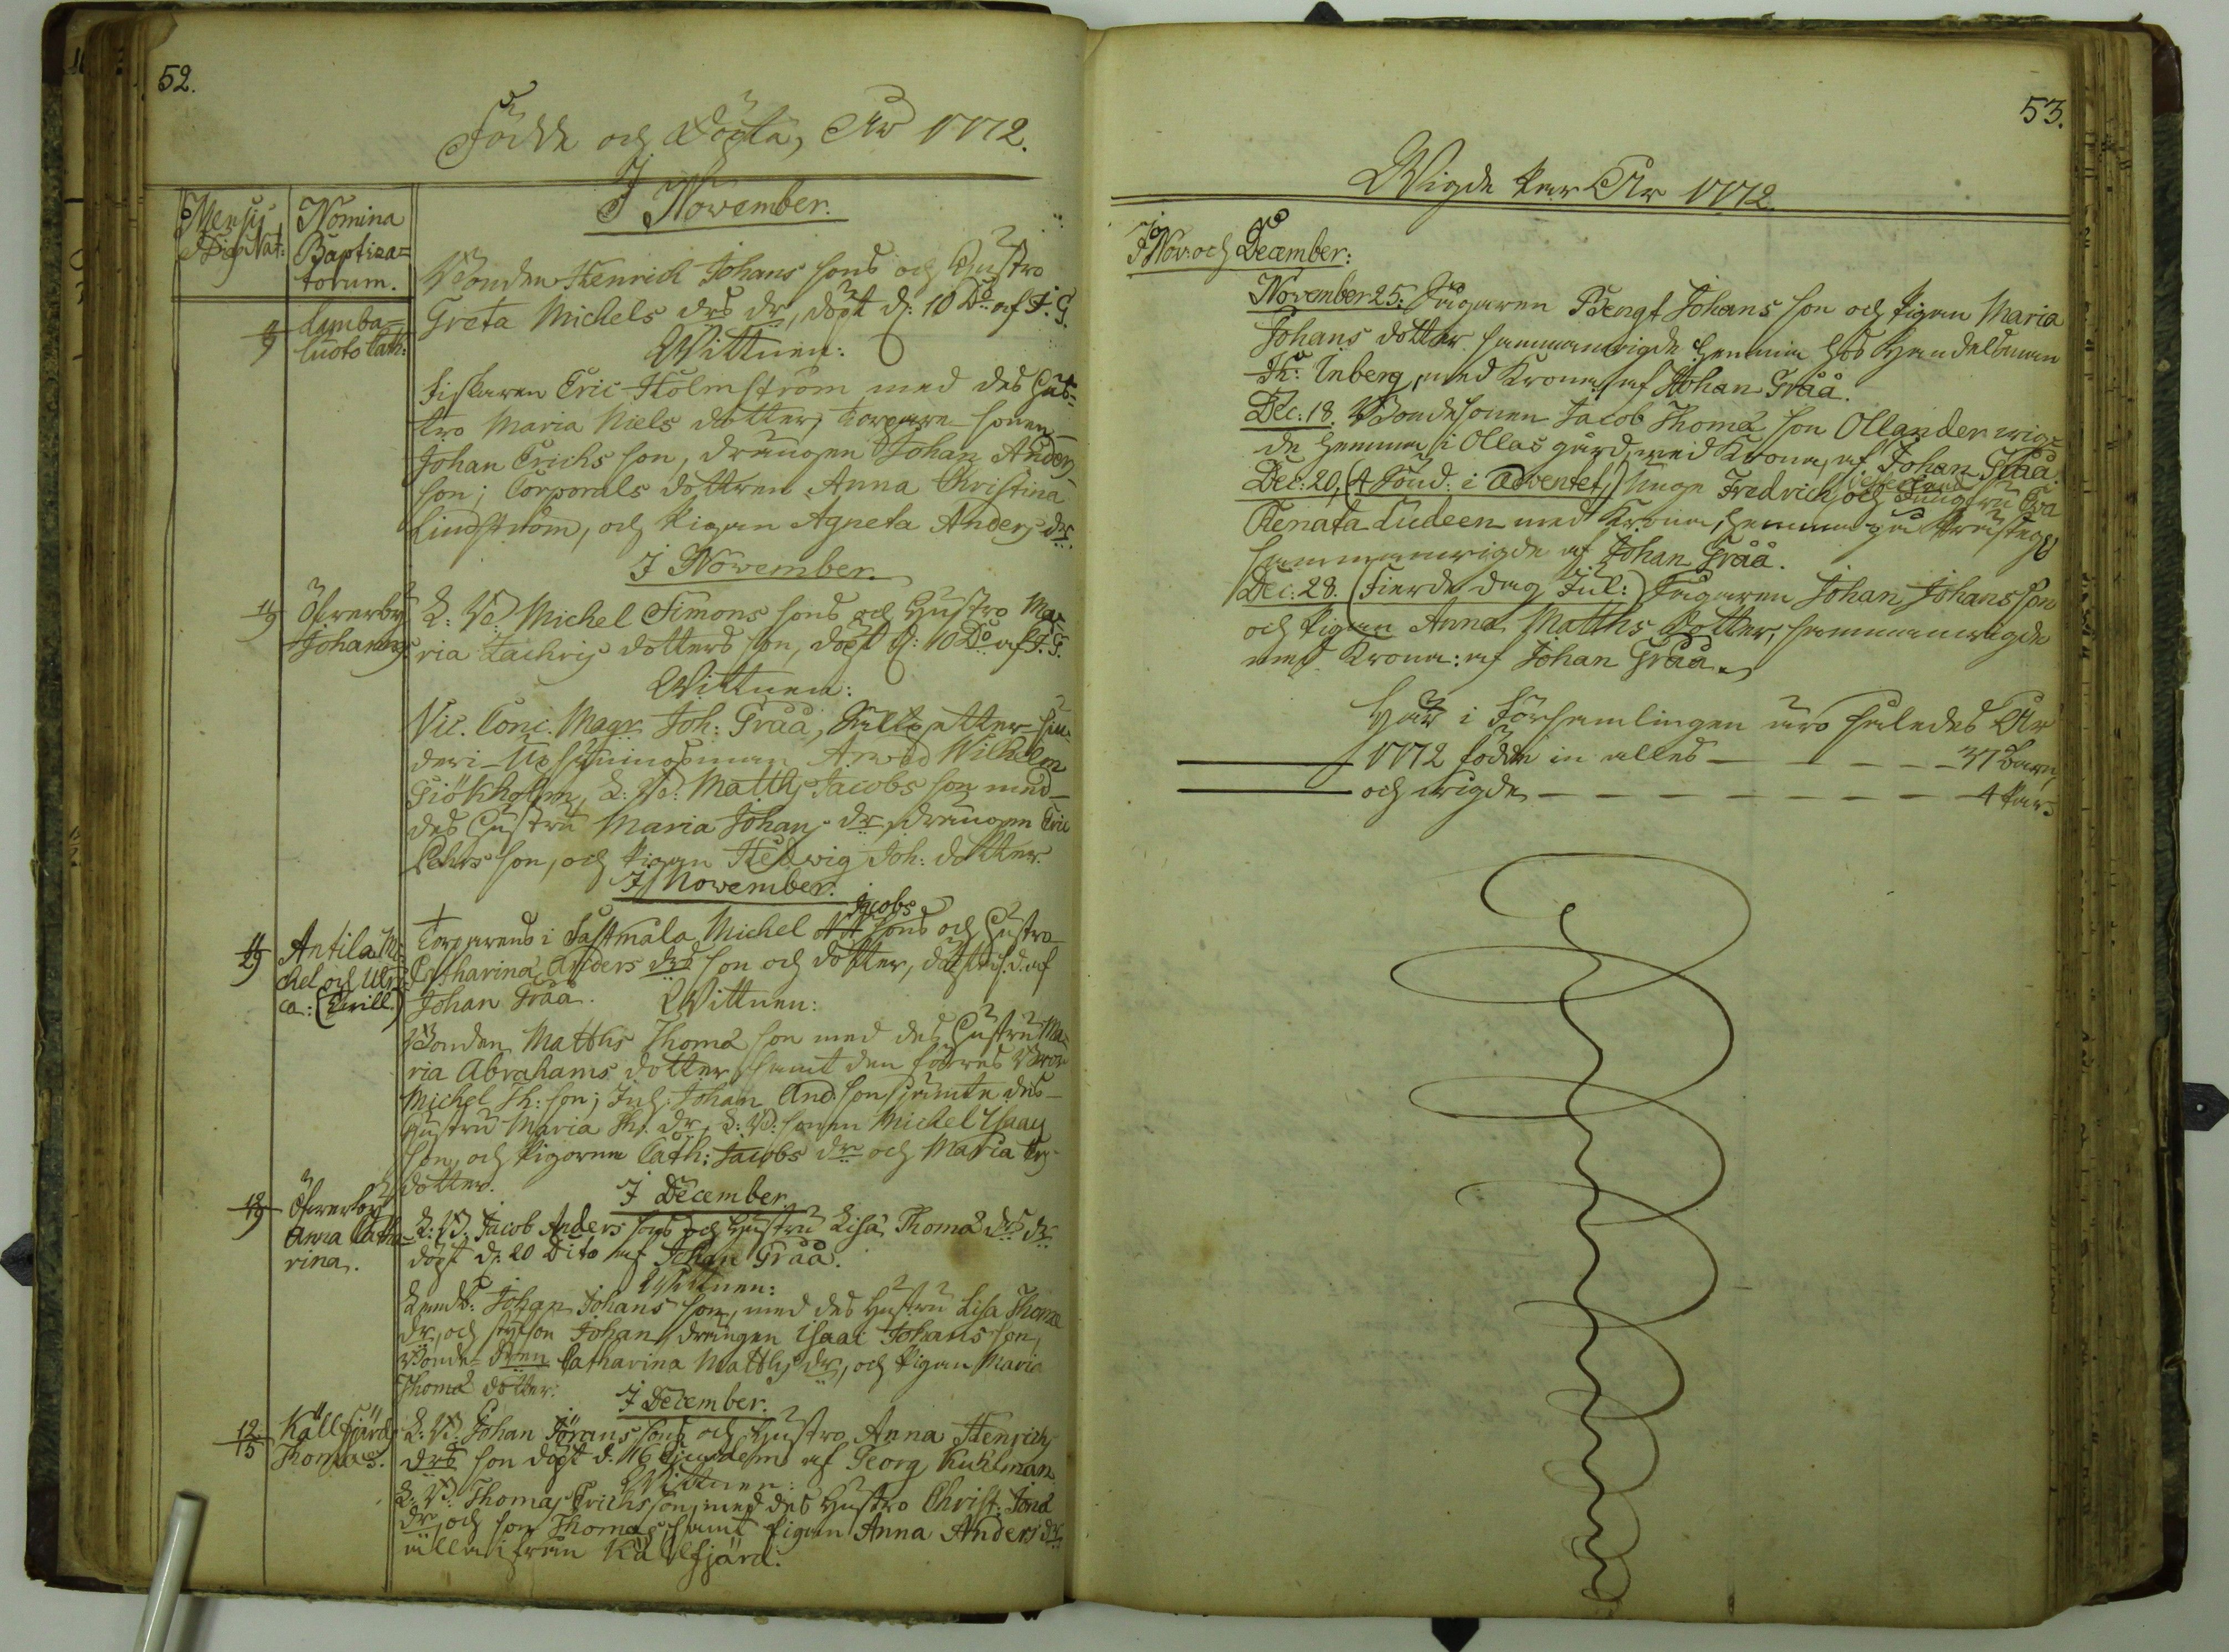 52.
Födde och Döpta, År 1772.
Mensis Dies Nat:
Nomina Baptiza=
torum.
I November.
11/9
Lamba=
luoto Cath:
Bonden Henrich Johans sons och Hustro
Greta Michels drs dr, döpt d: 10 Do af J. G.
Wittnen:
Fiskaren Eric Holmström med des Hus=
tro Maria Niels dotter, Torpare sonen
Johan Erichs son, drängen Johan Anders
son; Corporals dottren Anna Christina
Lindström, och Pigan Agneta Anders dr.
I November.
11/9
Öfwerby
Johannes
L: B. Michel Simons sons och Hustro Ma=
ria Zachris dotters son, döpt d: 10 Do af J. G.
Wittnen:
Vic. Conc. Magr Joh: Gråå,
Arwid Wilhelm
Giökholm, L: B: Matths Jacobs son med
des Hustru Maria Johans dr, drängen Eric
son, och Pigan Hedwig Joh: dotter.
I November.
11/29
Antila Mi=
chel och Ulri=
ca: (Twill.)
Torparens i Sastmala Michel Jacobs sons och Hustro
Catharina Anders drs son och dotter, af
Johan Gråå. Wittnen:
Bonden Matths Thomæ son med des Hustru Ma=
ria Abrahams dotter samt den förres Bror
Michel Th: son; Inh: Johan And. son jämte des
Hustru Maria Th: dr, L: B: sonen Michel Isaacs
son, och Pigorne Cath: Jacobs dr och Maria
dotter.
I December
12/19
Öfwerby
Anna Catha=
rina.
L: B. Jacob Anders sons och Hustru Lisa Thomæ drs dr
döpt d: 20 Dito af Johan Gråå.
Wittnen:
Johan Johans son, med des Hustru Lisa Thomæ
dr, och styfson Johan, drängen Isaac Johans son,
Bonde dren Catharina Matths dr, och Pigan Maria
Thomæ dotter.
I December.
12/15
Källfjärd
Thomas.
L: B. Johan Jörans sons och Hustro Anna Henrichs
drs son döpt d. 16 Ejusdem af Georg Kuhlman
Wittnen:
L: B. Thomas Erichs son, med des Hustro Christ. Jonæ
dr, och son Thomas, samt Pigan Anna Anders dr
alla ifrån Källfjärd.
53.
Wigde Par År 1772.
I Nov: och December:
November 25. Bengt Johans son och Pigan Maria
Johans dotter sammanwigde hemma hos Handelsman
Th: Enberg, med Krona, af Johan Gråå.
Dec: 18. Bondesonen Jacob Thomæ son Ollander wig=
de hemma i Ollas gård, med Krona, af Johan Gråå.
Dec: 20, (4 Sönd: i Adventet,) Fredrich och Jungfru Eva
Renata Ludeen med Krona, hemma på Prästegd
sammanwigde af Johan Gråå.
Dec: 28. (Fierde dag Jul:) Johan Johans son
och Pigan Anna Matths dotter, sammanwigde
med Krona: af Johan Gråå.
Här i Församlingen äro således År
1772 födde in alles — — — — 37 Barn,
och wigde — — — — — — — 4 Par.